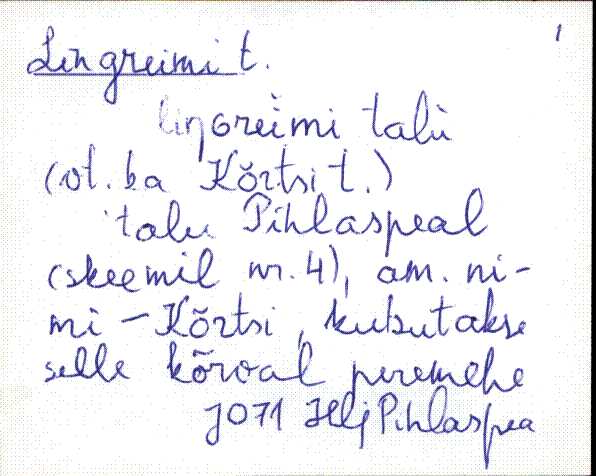 Lingreimi t.
1
liŋgreimi talu
(vt. ka Kõrtsi t.)
talu Pihlaspeal
(skeemil nr. 4), am. ni-
mi – Kõrtsi, kutsutakse
selle kõrval peremehe
J071 Hlj Pihlaspea